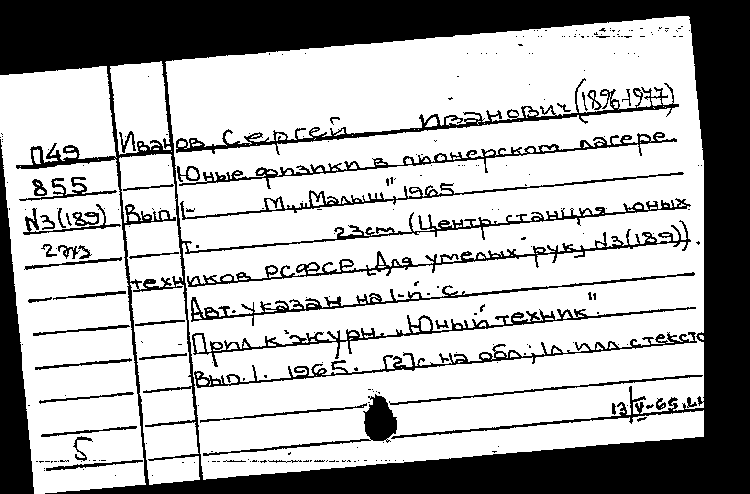 П49 Иванов, Сергей Иванович (1896-1977)
855 Юные физики в пионерском лагере.
N3(189) Вып. 1- М., „Малыш", 1965
2 экз т. 23 см. (Центр. станция юных
техников РСФСР, „Для умелых рук, N3(189)).
Авт. указан на 1-й с.
Прил к журн. „Юный техник".
Вып. 1. 1965. [2]с. на обл.; 1л. илл с тексто
5 13/V-65